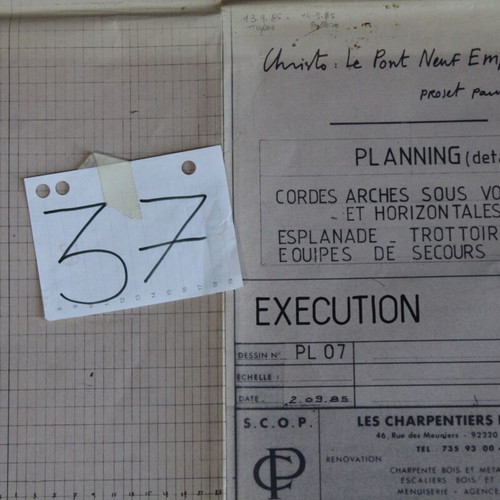 13.9.85 - 14.9.85
Christo : Le Pont Neuf Em
PROJET pour
PLANNING (deta
CORDES ARCHES SOUS VO
- ET HORIZONTALES
ESPLANADE - TROTTOIR
EQUIPES DE SECOURS
37
EXECUTION
DESSIN N° PL 07
ECHELLE :
DATE . 2.09.85
S.C.O.P.
LES CHARPENTIERS
46, Rue des Meuniers - 92220
TEL . 735 93 00
RENOVATION
CHARPENTE BOIS ET META
ESCALIERS BOIS ET
MENUISERIE - AGENCE